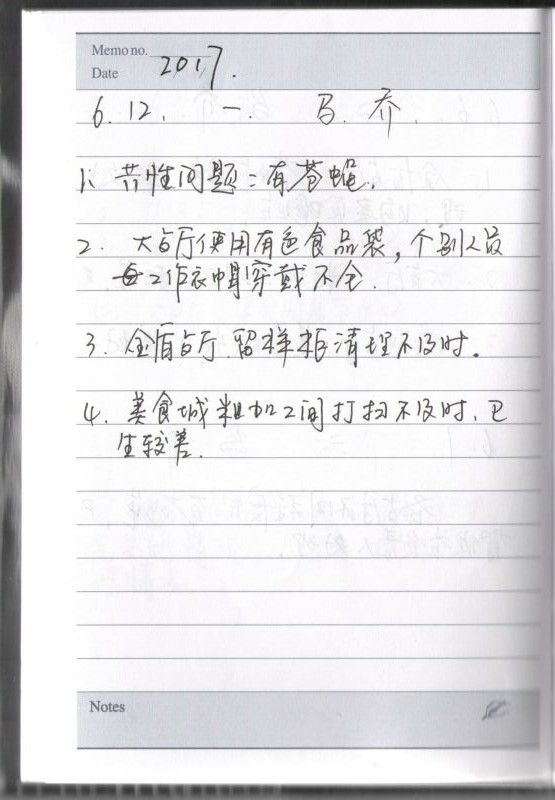 Memo no.
Date 2017.
6.12. 一. 马. 乔.
1、共性问题：有苍蝇.
2. 大占厅使用有色食品袋，个别人员
工作衣帽穿戴不全.
3. 金盾占厅.留样柜清理不及时。
4. 美食城粗加工间打扫不及时、卫
生较差.
Notes